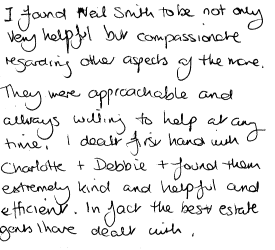 I found Neil Smith to be not only
very helpful but compassionate
regarding other aspects of the move.
They were approachable and
always willing to help at any
time. I dealt first hand with
Charlotte + Debbie + found them
extremely kind and helpful and
efficient. In fact the best estate
gents I have dealt with.